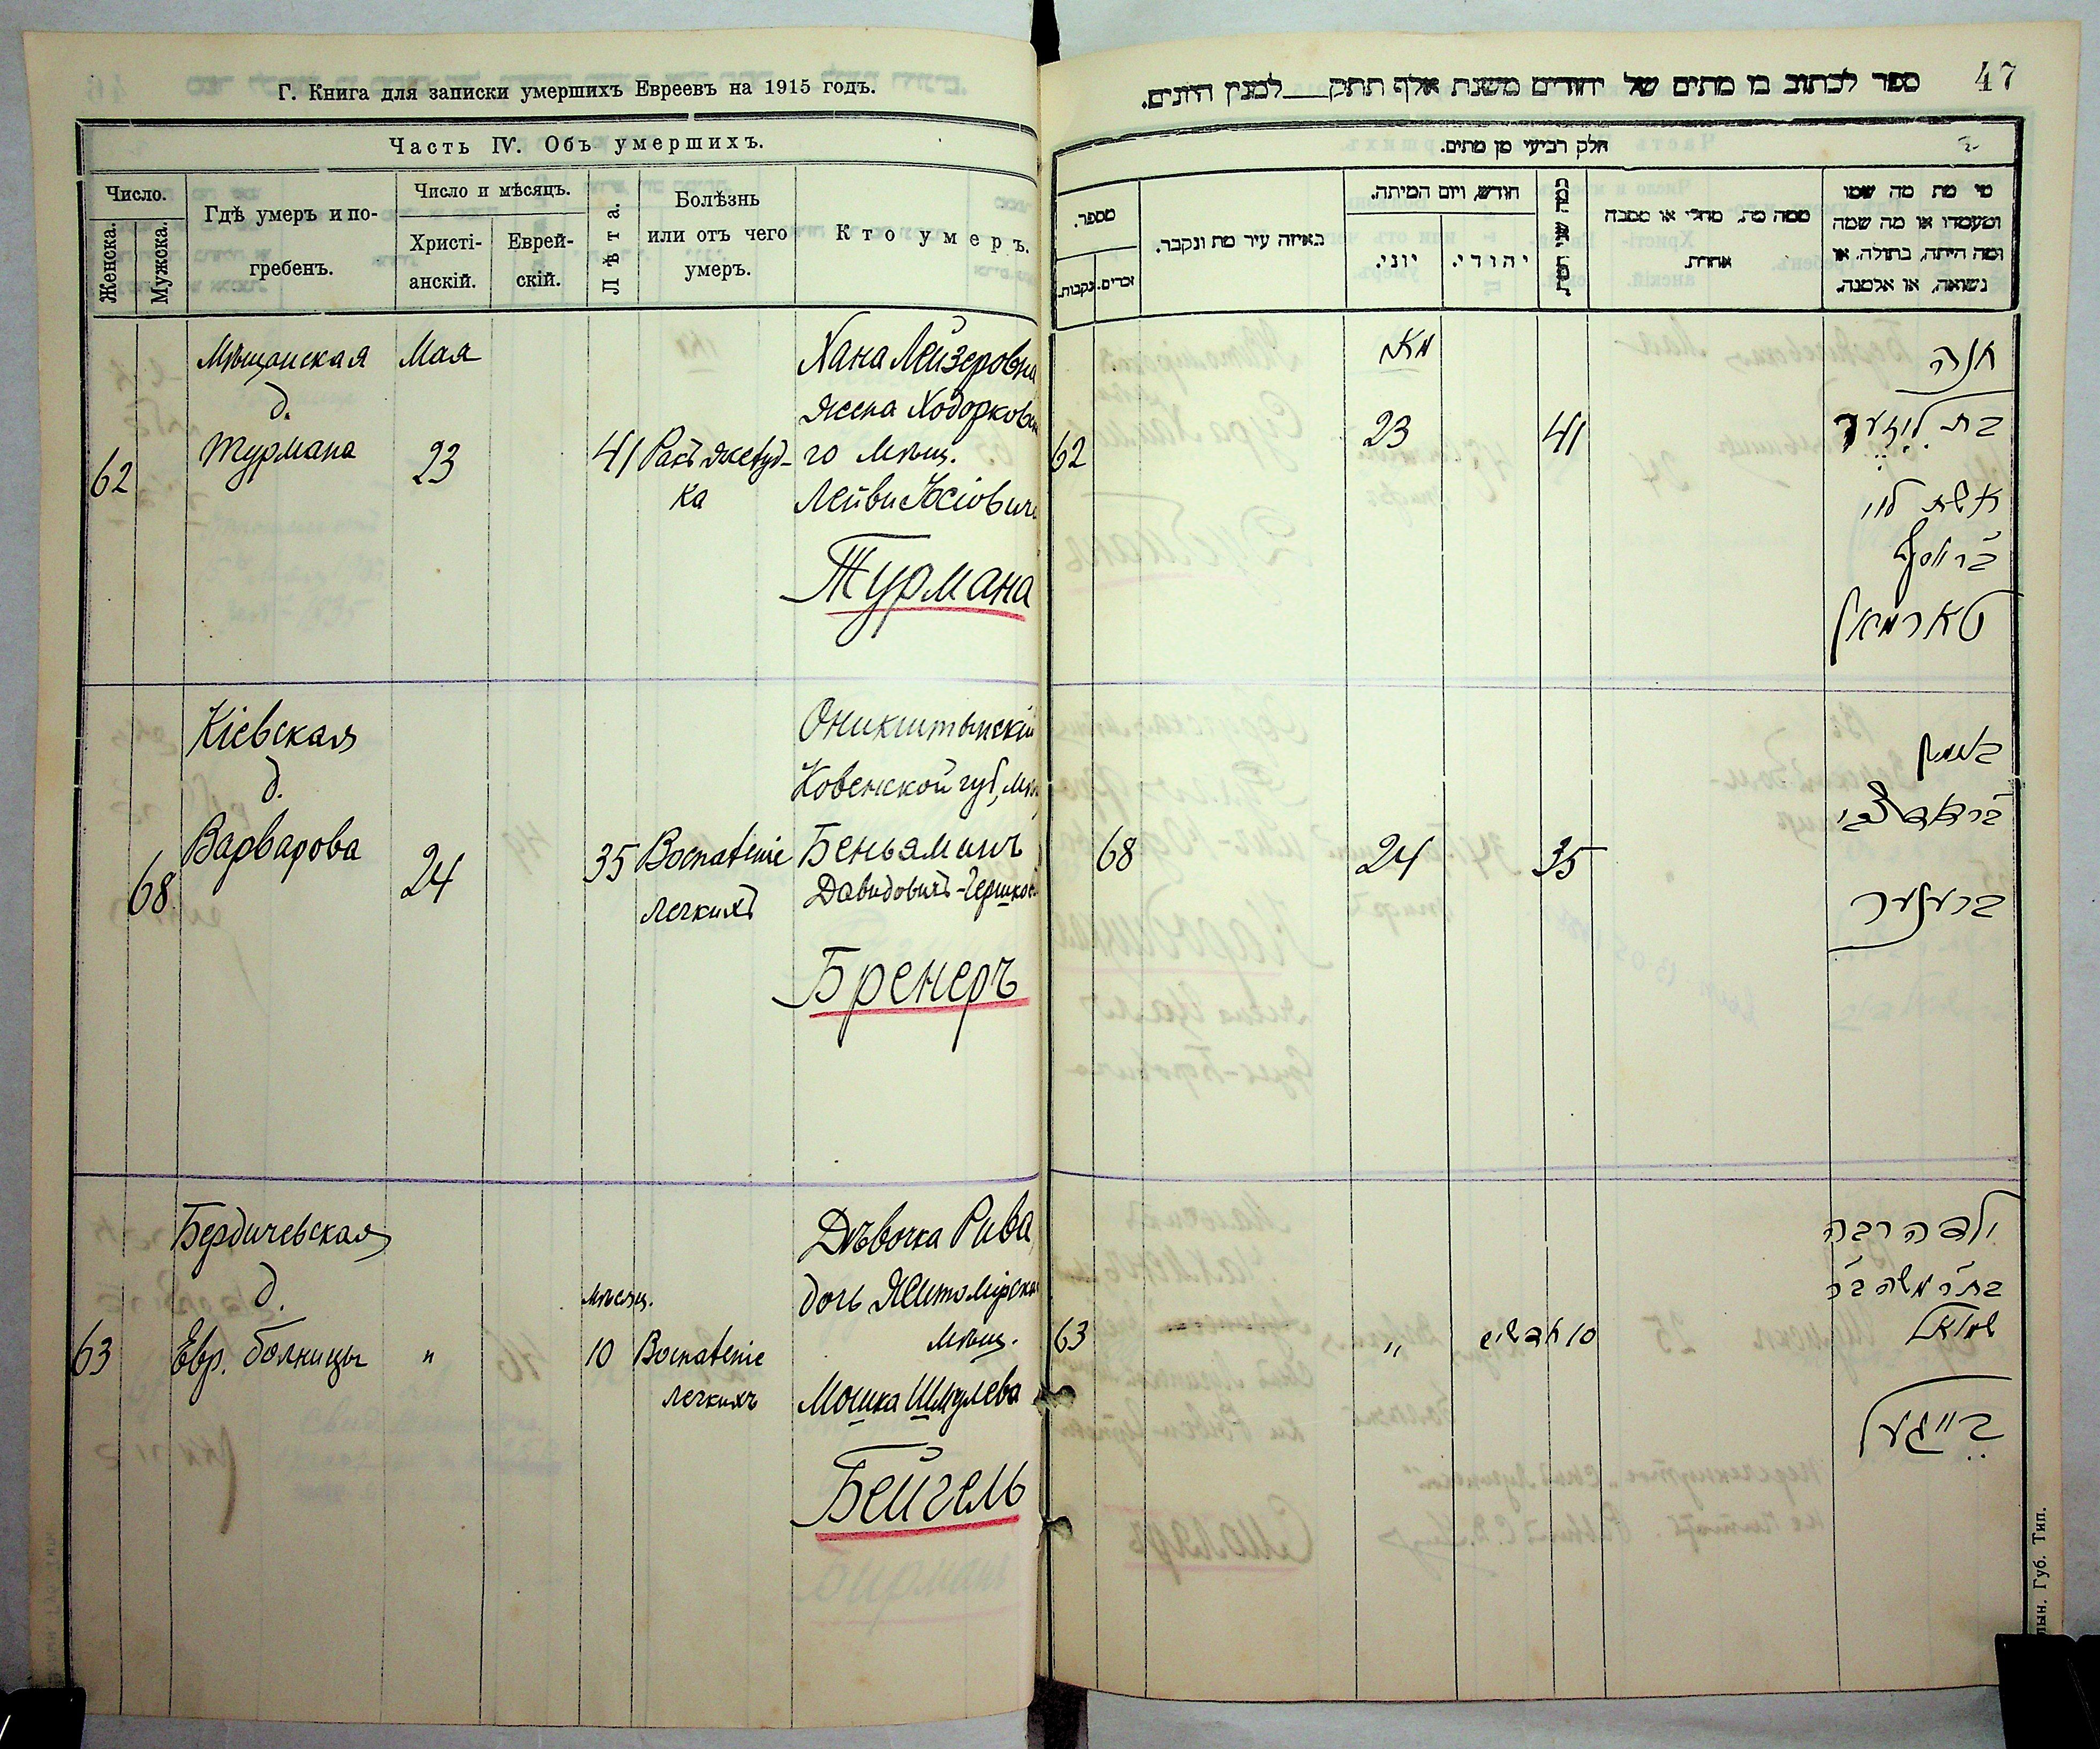 Г. Книга для записки умершихъ Евреевъ на 1915 годъ.
Часть IV. Объ умершихъ.
Число.
Женска.
Мужска.
Гдѣ умеръ и по-
гребенъ.
Число и мѣсяцъ.
Христі-
анскій.
Еврей-
скій.
Лѣта.
Болѣзнь
или отъ чего
умеръ.
Кто умеръ.
62
Мѣщанская
д.
Турмана
Мая
23
41
Ракъ желуд-
ка
Хана Лейзеровна
жена Ходорковск
го мѣщ.
Лейви Іосіовича
Турмана
68
Кіевская
д.
Варварова
24
35
Воспаленіе
легкихъ
Оникштынскій
Ковенской губ., мѣщ
Беньяминъ
Давидовичъ-Гершков
Бренеръ
63
Бердичевская
д.
Евр. больницы
"
мѣсяц.
10
Воспаленіе
легкихъ
Дѣвочка Рива,
дочь Житомірска
мѣщ.
Мошка Шмулева
Бейгель
47
ספר לכתוב בו מתים של יהודים משנת אלף תתק___למנין היונים.
חלק רביעי מן מתים.
מספר.
נקבות.
זכרים.
באיזה עיר מת ונקבר.
חודש, ויום המיתה.
יוני.
יהודי.
ממה מת, מחלי או מסבה
אחרת.
מי מת מה שמו
ומעמדו או מה שמה
ומה היתה, בתולה, או
נשואה, או אלמנה.
62
מאי
23
41
חנה
בת לייזער
אשת לוי
ב״ר יוסף
טארמאן
68
24
35
בנימין
ב״ר דוד צבי
ברענער
63
"
10 חדשים
ילדה רבה
בת ר׳ משה ב״ר
שמואל
בייגעל
лын. Губ. Тип.